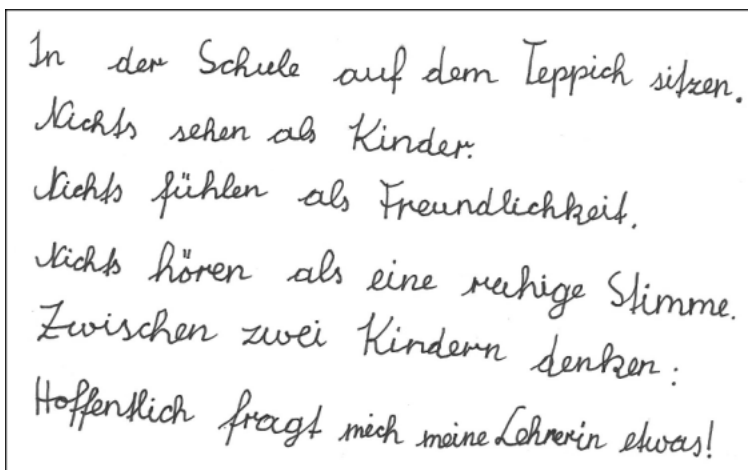 In der Schule auf dem Teppich sitzen.
Nichts sehen als Kinder.
Nichts fühlen als Freundlichkeit.
Nichts hören als eine ruhige Stimme.
Zwischen zwei Kindern denken:
Hoffentlich fragt mich meine Lehrerin etwas!